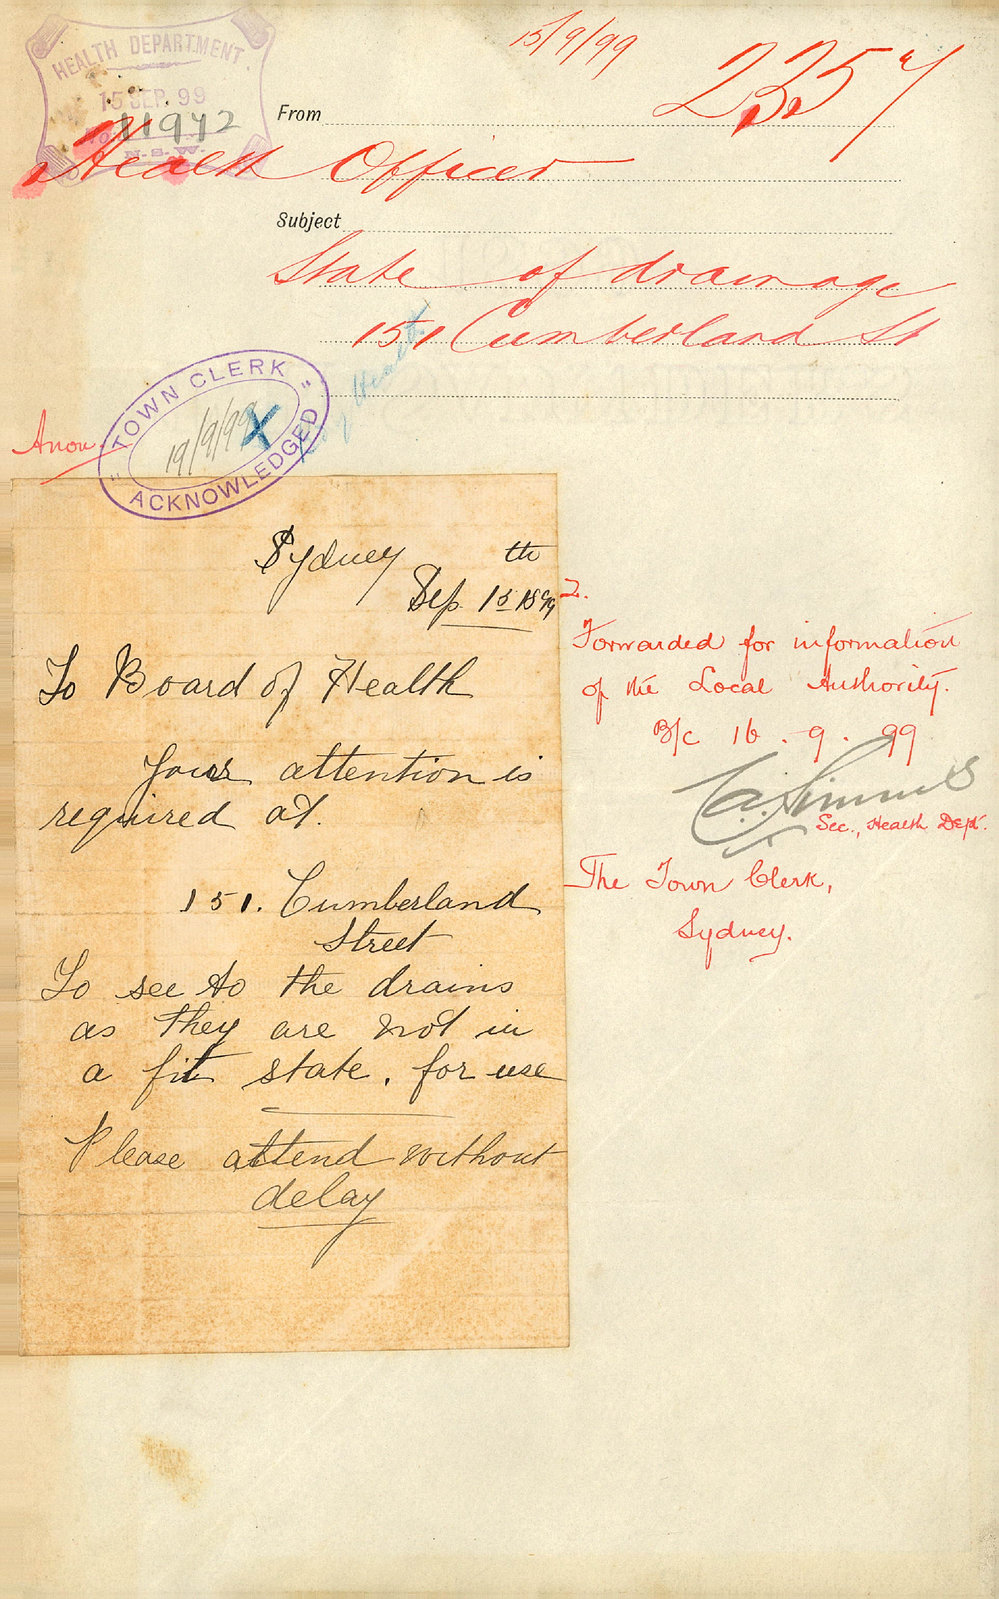 HEALTH DEPARTMENT
15 SEP. 99
No. 11972
N.S.W.
15/9/99
2357
From
Health Officer
Subject
State of drainage
151 Cumberland St
"TOWN CLERK"
19/9/99 X
ACKNOWLEDGED
Anon.
Sydney
th
Sep. 15 1899
To Board of Health
Your attention is
required at.
151. Cumberland
Street
To see to the drains
as they are not in
a fit state. for use
Please attend without
delay
2.
Forwarded for information
of the Local Authority.
B/c 16. 9. 99
Sec., Health Dept.
The Town Clerk,
Sydney.